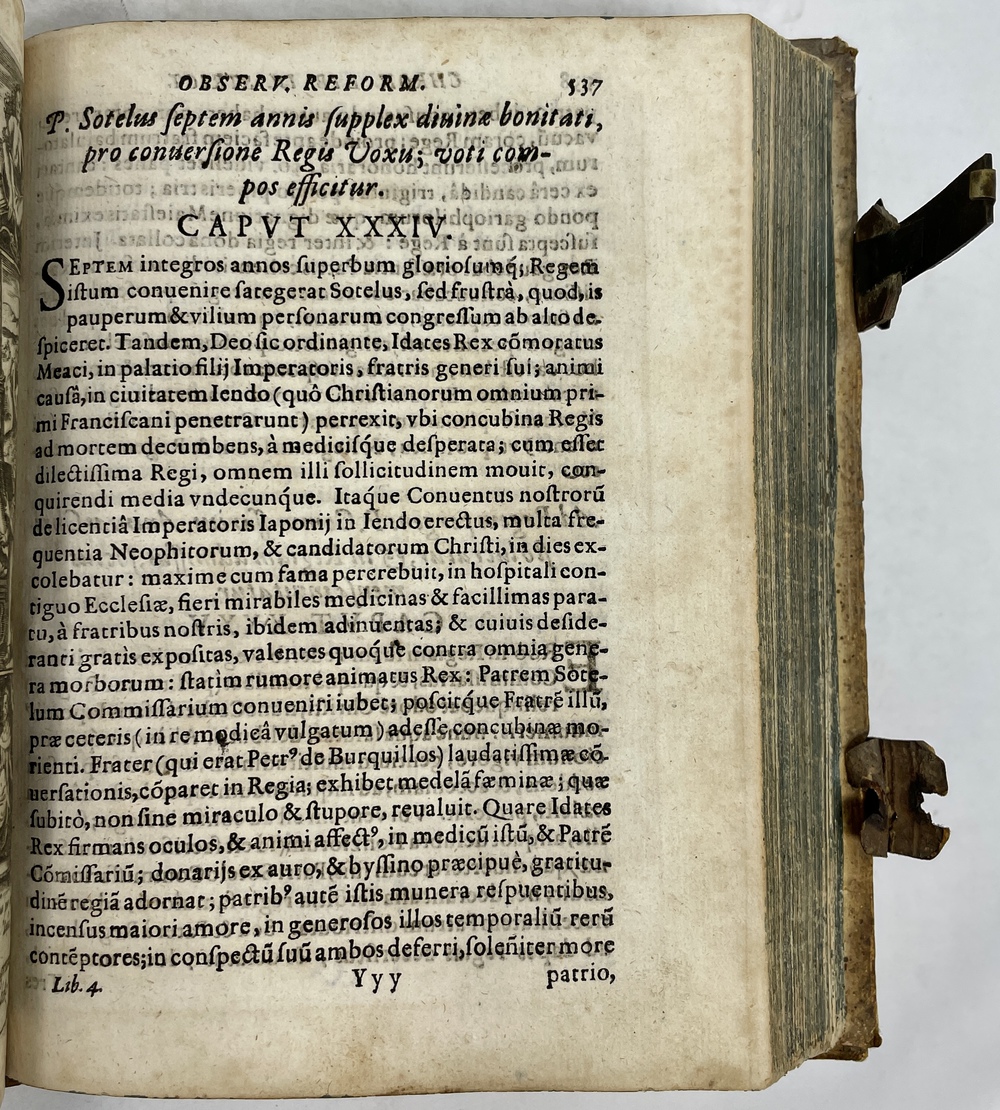 OBSERV. REFORM. 537
P. Sotelus ſeptem annis ſupplex diuinæ bonitati,
pro conuerſione Regis Voxu; voti com-
pos efficitur.
CAPVT XXXIV.
SEPTEM integros annos ſuperbum glorioſumq́; Regem
iſtum conuenire ſategerat Sotelus, ſed fruſtrà, quod, is
pauperum & vilium perſonarum congreſſum ab alto de-
ſpiceret. Tandem, Deo ſic ordinante, Idates Rex cõmoratus
Meaci, in palatio filij Imperatoris, fratris generi ſui; animi
cauſâ, in ciuitatem Iendo (quô Chriſtianorum omnium pri-
mi Franciſcani penetrarunt) perrexit, vbi concubina Regis
ad mortem decumbens, à mediciſq́ue deſperata; cum eſſet
dilectiſſima Regi, omnem illi ſollicitudinem mouit, con-
quirendi media vndecunq́ue. Itaq́ue Conuentus noſtrorũ
de licentiâ Imperatoris Iaponij in Iendo erectus, multa fre-
quentia Neophitorum, & candidatorum Chriſti, in dies ex-
colebatur: maxime cum fama pererebuit, in hoſpitali con-
tiguo Eccleſiæ, fieri mirabiles medicinas & facillimas para-
tu, à fratribus noſtris, ibidem adinuentas; & cuiuis deſide-
ranti gratìs expoſitas, valentes quoq́ue contra omnia gene-
ra morborum: ſtatìm rumore animatus Rex: Patrem Sote-
lum Commiſſarium conueniri iubet; poſcitq́ue Fratrẽ illũ,
præ ceteris (in re medicâ vulgatum) adeſſe concubinæ mo-
rienti. Frater (qui erat Petrꝰ de Burquillos) laudatiſſimæ cõ-
uerſationis, cõparet in Regia; exhibet medelã fæminæ; quæ
ſubitò, non ſine miraculo & ſtupore, reualuit. Quare Idates
Rex firmans oculos, & animi affectꝰ, in medicũ iſtũ, & Patrẽ
Cõmiſſariũ; donarijs ex auro, & byſſino præcipuè, gratitu-
dinẽ regiã adornat; patribꝰ autẽ iſtis munera reſpuentibus,
incenſus maiori amore, in generoſos illos temporaliũ rerũ
contẽptores; in conſpectũ ſuũ ambos deferri, ſoleñiter more
Lib. 4. Yyy patrio,